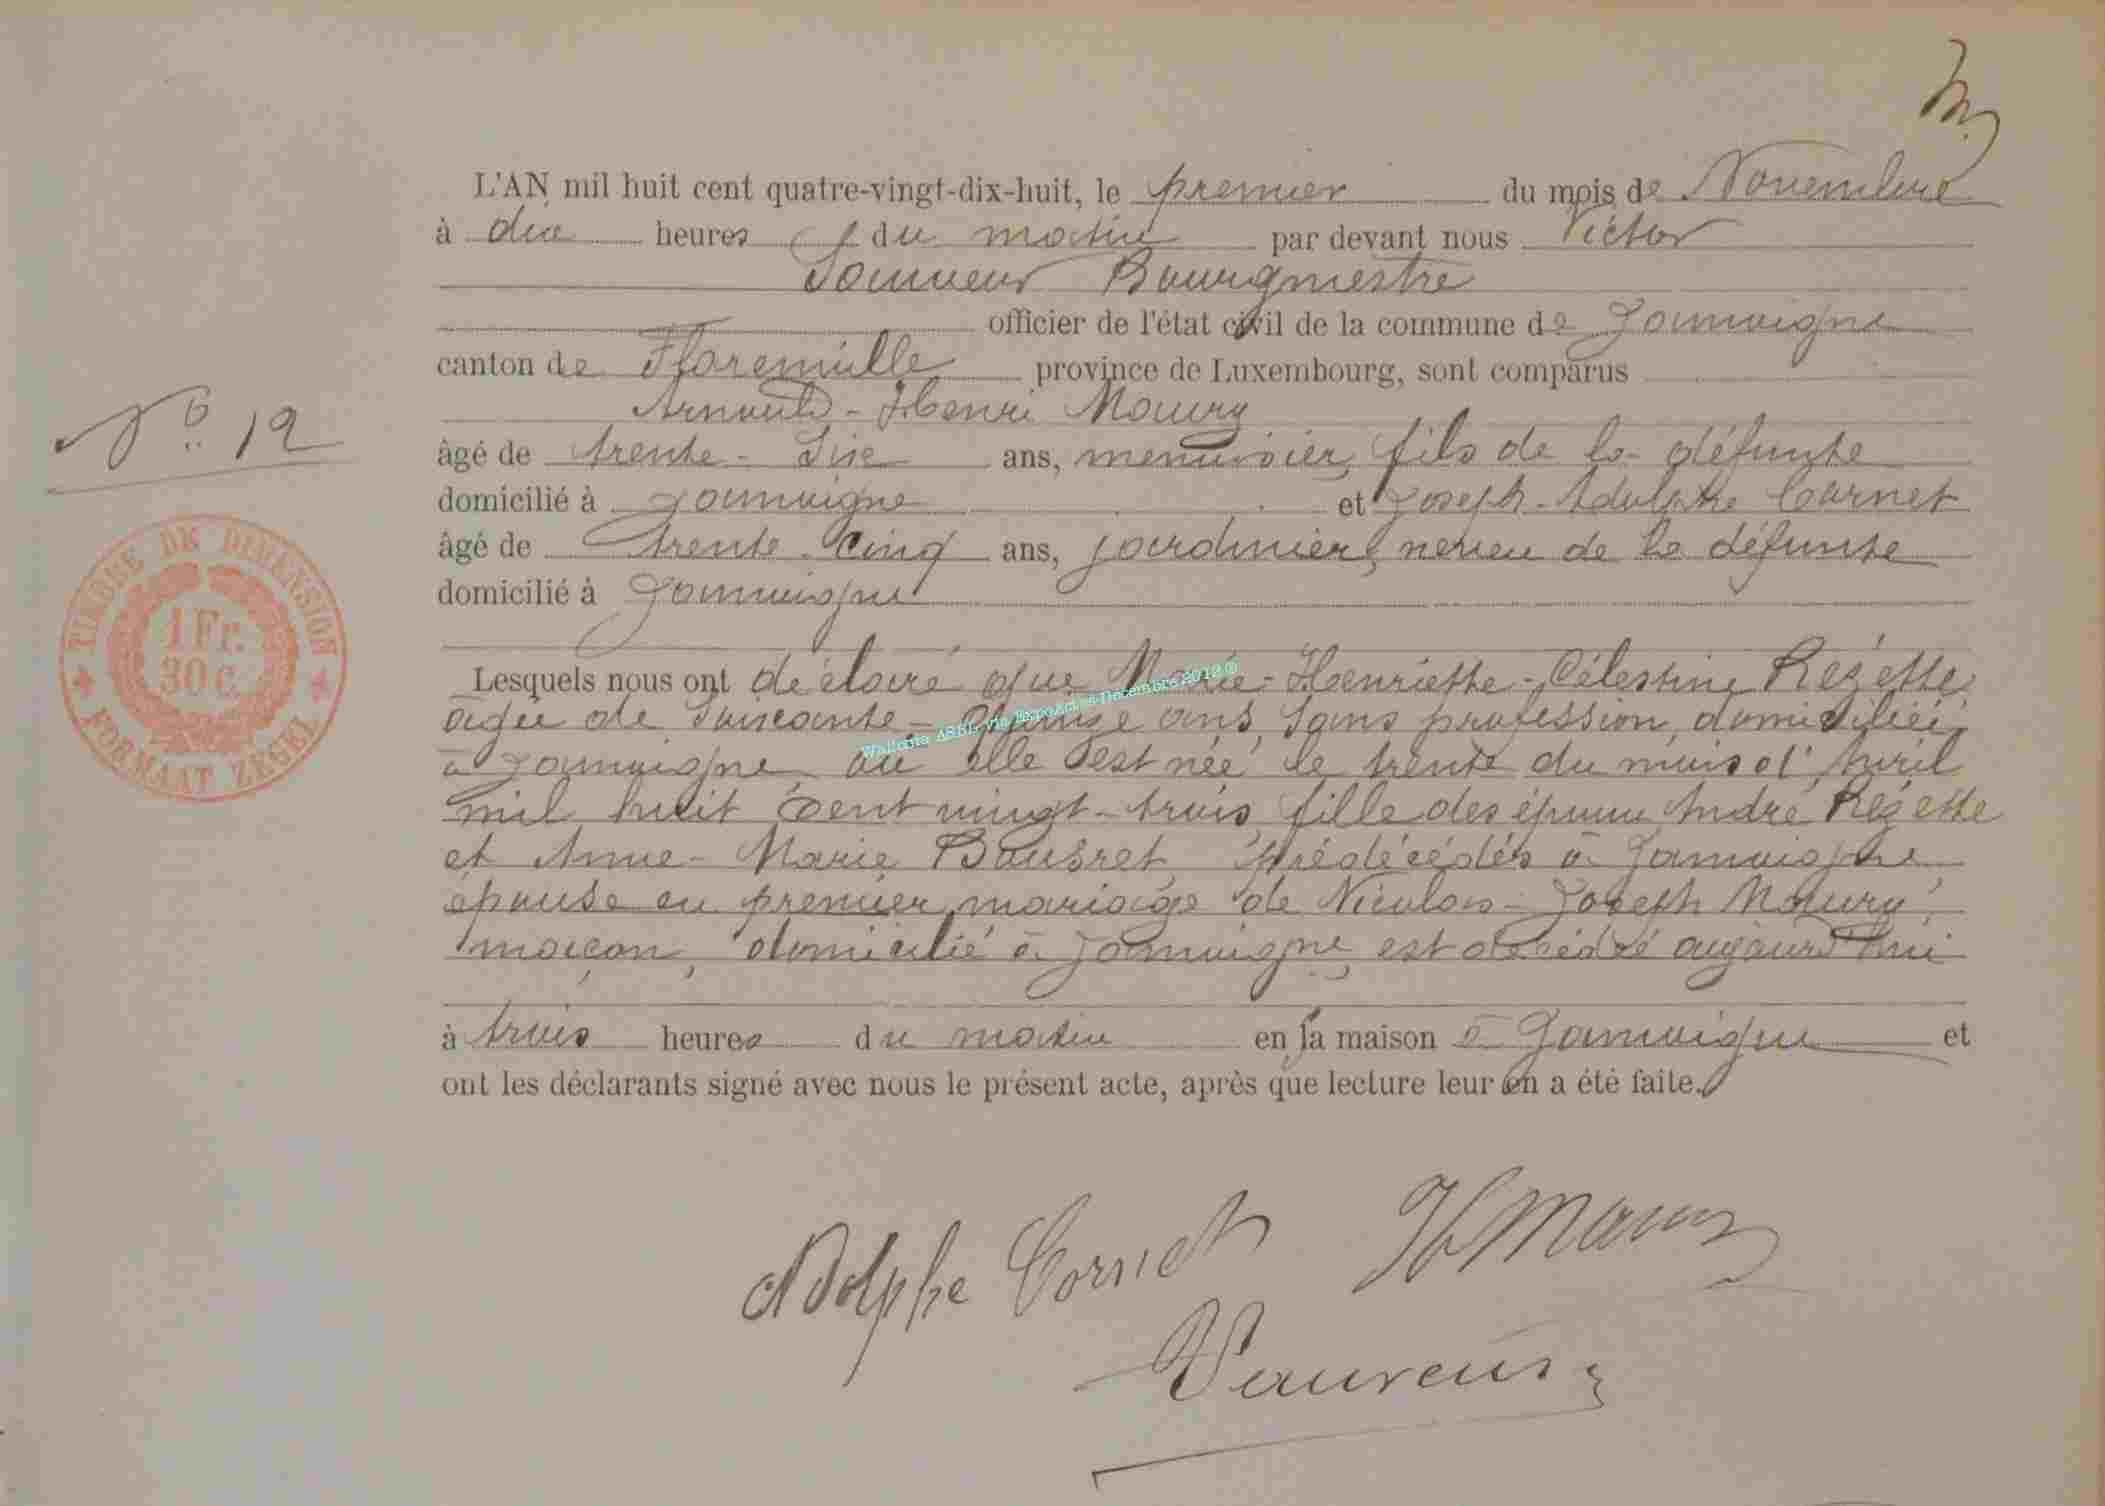 L'AN mil huit cent quatre-vingt-dix-huit, le premier du mois de Novembre
à dix heures du matin par devant nous Victor
Bourgmestre
officier de l'état civil de la commune de Jamoigne
canton de Florenville province de Luxembourg, sont comparus
Arnould-Henri Maury
N° 12
âgé de trente-Six ans, menuisier, fils de la défunte
domicilié à Jamoigne et Joseph-Adolphe Cornet
âgé de trente-cinq ans, jardinier, neveu de la défunte
domicilié à Jamoigne
TIMBRE DE DIMENSION
1 Fr.
30 c.
FORMAAT ZEGEL
Lesquels nous ont déclaré que Marie-Henriette-Célestine Rézette
âgée de Soixante-Quinze ans, Sans profession, domiciliée
à Jamoigne, où elle est née le trente du mois d'Avril
mil huit Cent vingt-trois, fille des époux André Rézette
et Anne-Marie Bousret, prédécédés à Jamoigne,
épouse en premier mariage de Nicolas-Joseph Maury,
maçon, domicilié à Jamoigne, est décédée aujourd'hui
à trois heures du matin en sa maison à Jamoigne et
ont les déclarants signé avec nous le présent acte, après que lecture leur en a été faite.
Wallonia ASBL via ExpoActes Décembre 2012 ©
Adolphe Cornet H Maury